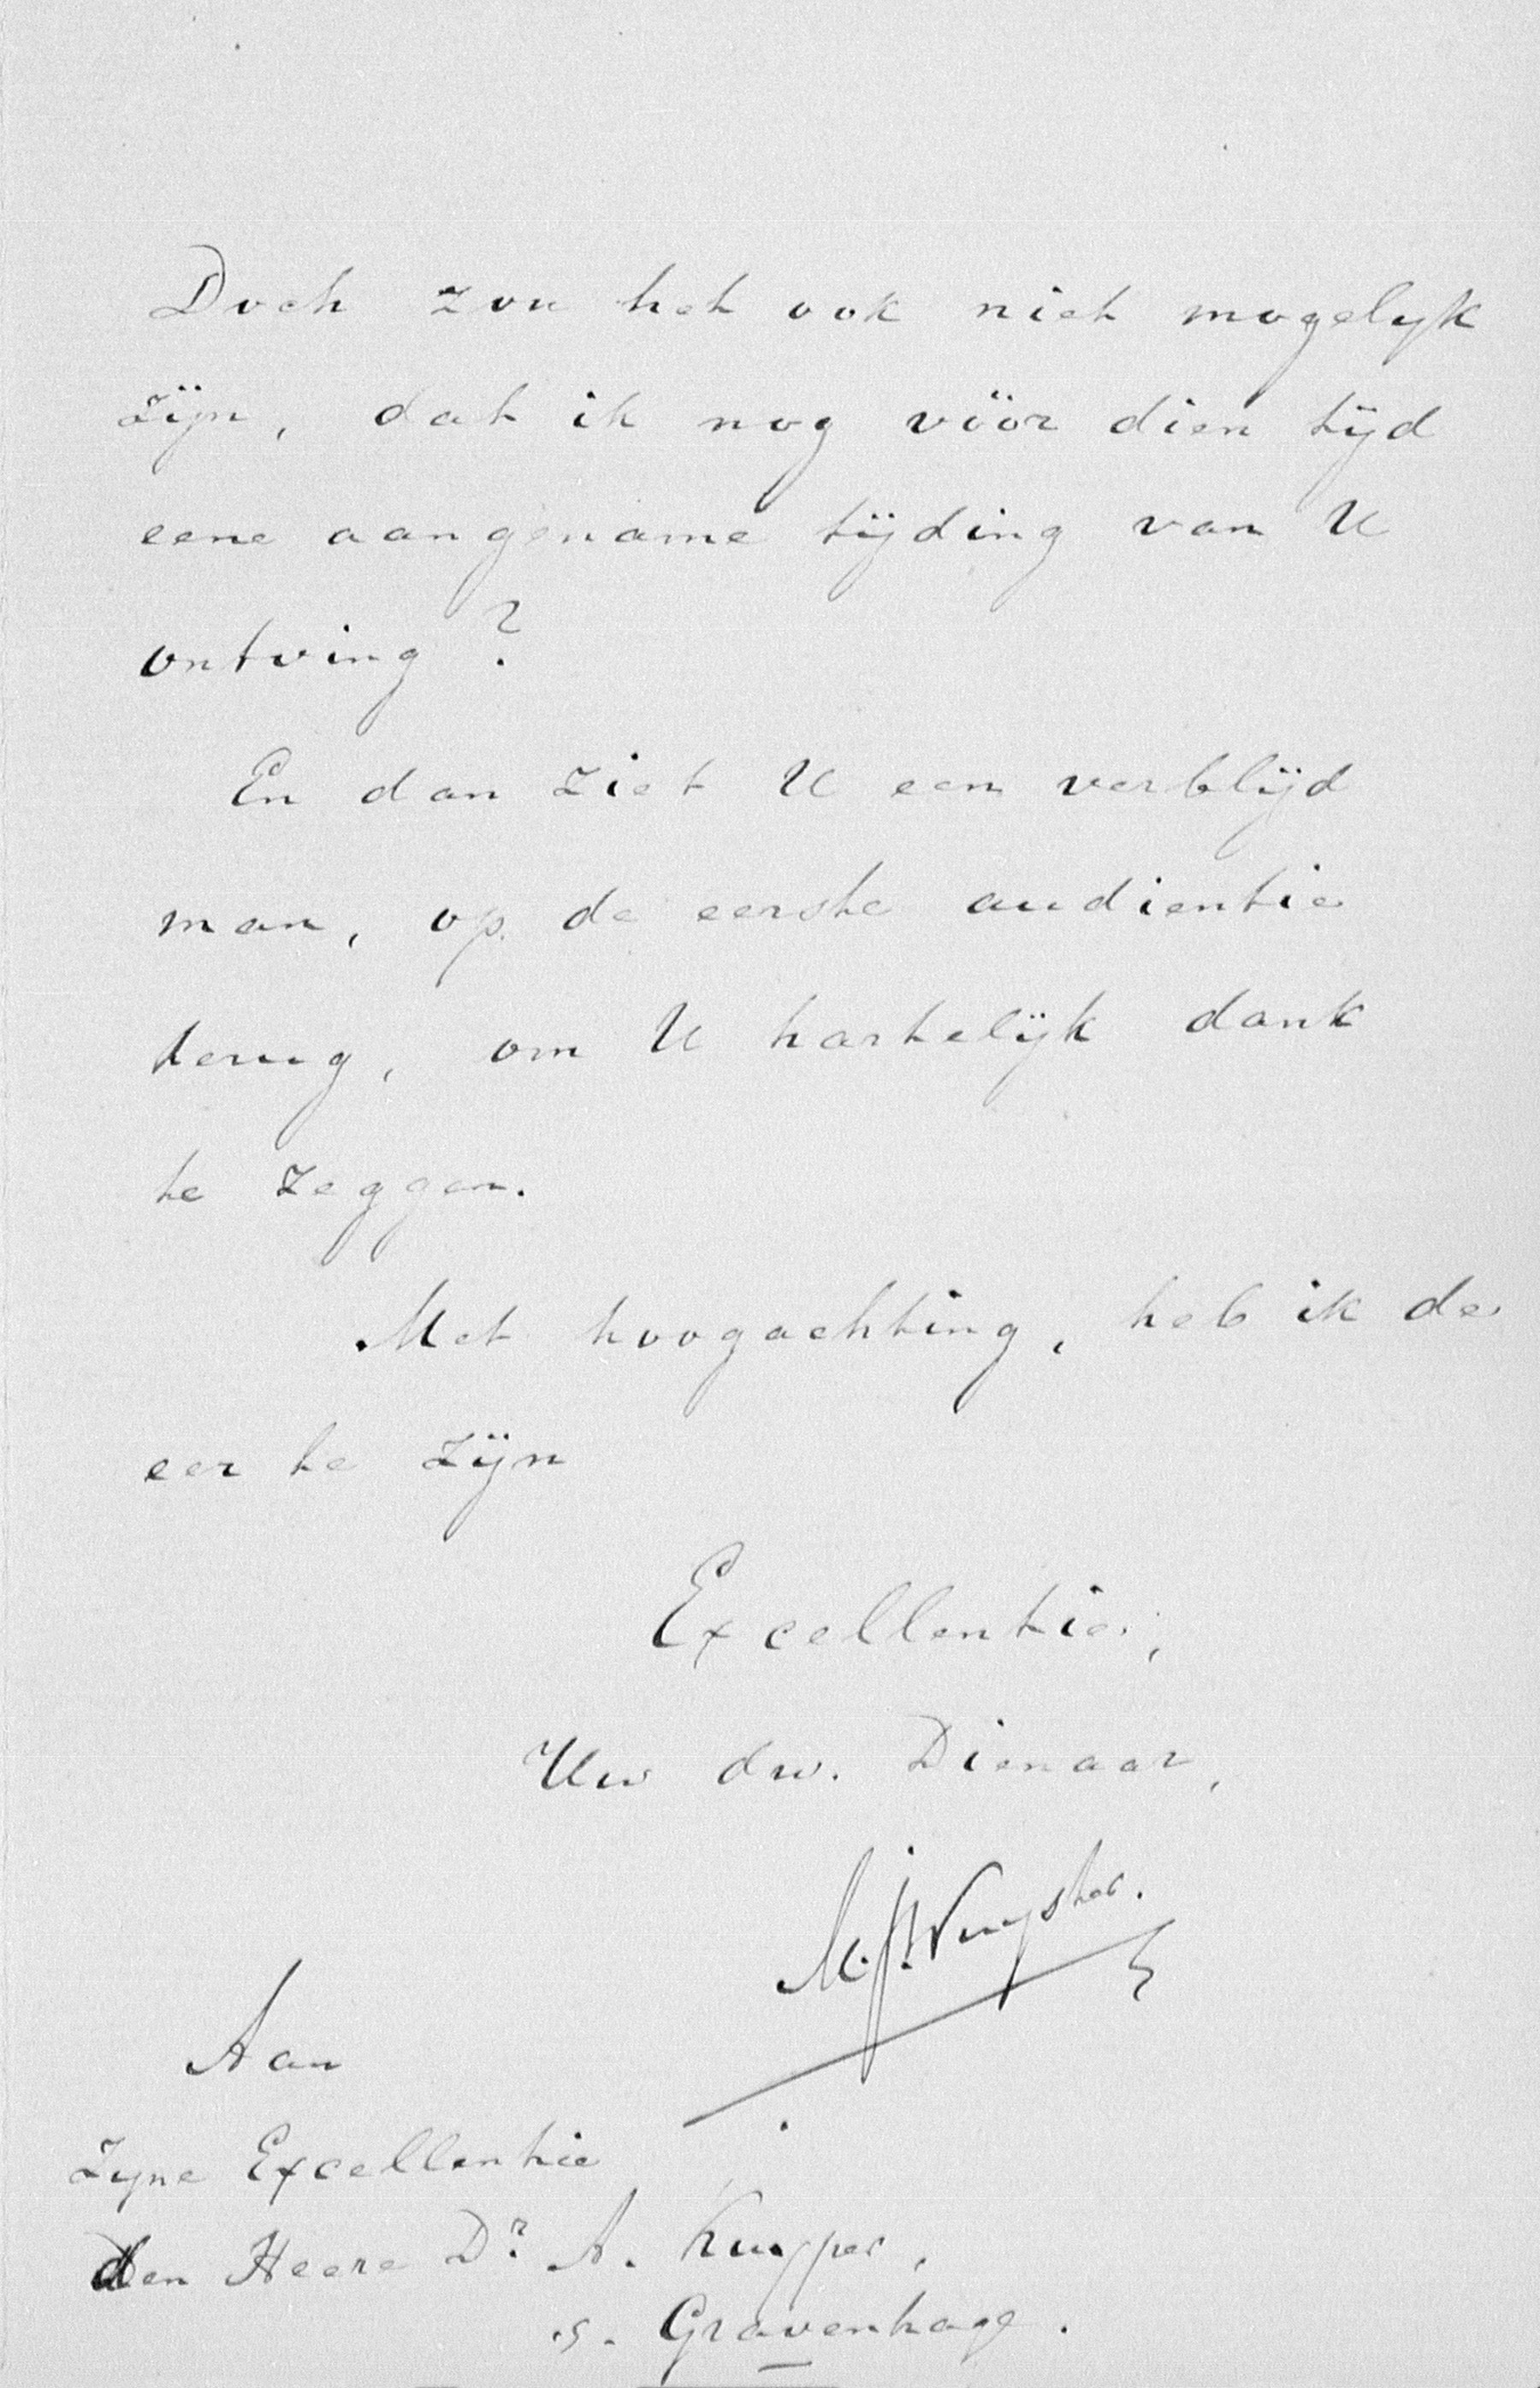 Doch zou het ook niet mogelyk
zijn, dat ik nog vöör dien tijd
eene aangename tijding van U
ontving?
En dan ziet U een verblijd
man, op de eerste audientie
terug, om U hartelijk dank
te zeggen.
Met hoogachting, heb ik de
eer te zijn
Excellentie,
Uw dw. Dienaar,
Aan
Zyne Excellentie
den Heere Dr. A. Kuyper,
s. Gravenhage.